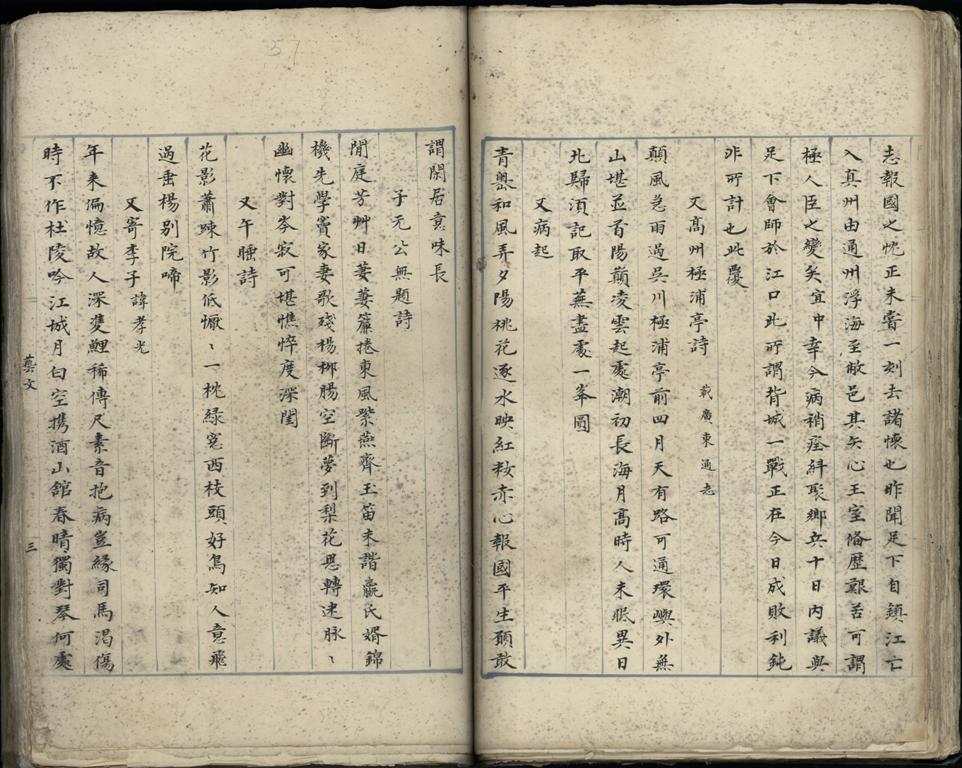 志報國之忱正未嘗一刻去諸懷也昨聞足下自鎮江亡
入真州由通州浮海至敝邑其矢心王室備歷艱苦可謂
極人臣之變矣宜中幸今病稍痊糾聚鄉兵十日內議與
足下會師於江口此所謂背城一戰正在今日成敗利鈍
非所計也此覆
又高州極浦亭詩 載廣東通志
顛風急雨過吳川極浦亭前四月天有路可通環嶼外無
山堪並首陽巔凌雲起處潮初長海月高時人未眠異日
北歸須記取平蕪盡處一峯圓
又病起
青罍和風弄夕陽桃花逐水映紅妝赤心報國平生願敢
謂閑居意味長
子元公無題詩
閒庭芳艸日萋萋簾捲東風紫燕齊玉笛未諧嬴氏婿錦
機先學竇家妻歌殘楊柳腸空斷夢到梨花思轉迷脉〻
幽懷對岑寂可堪憔悴度深閨
又午睡詩
花影蕭疎竹影低懨〻一枕綠窓西枝頭好鳥知人意飛
過垂楊別院啼
又寄李子 諱孝光
年來徧憶故人深雙鯉稀傳尺素音抱病豈緣司馬渴傷
時不作杜陵吟江城月白空携酒山舘春晴獨對琴何處
藝文
三
57